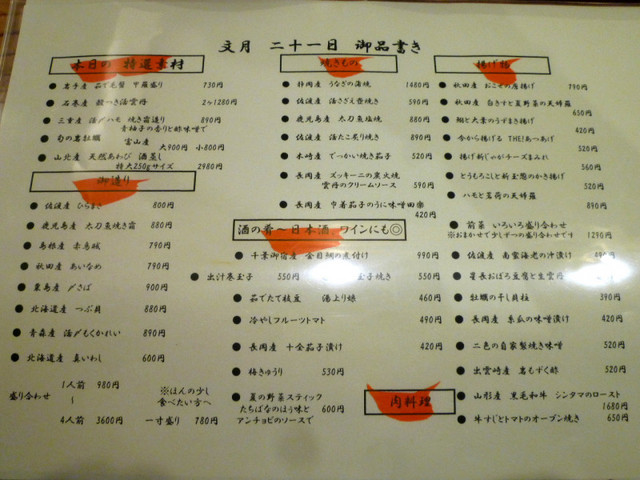 文月 二十一日 御品書き
本日の 特選素材
岩手産 茹で毛蟹 甲羅盛り 730円
石巻産 殻つき活雲丹 2ヶ1280円
三重産 活〆ハモ 焼き霜造り 890円
青柚子の香りと酢味噌で
旬の岩牡蠣 富山産 大900円 小800円
山北産 天然あわび 酒蒸し
特大250gサイズ 2980円
御造り
佐渡産 ひらまさ 800円
鹿児島産 太刀魚焼き霜 880円
島根産 赤烏賊 790円
秋田産 あいなめ 790円
粟島産 〆さば 900円
北海道産 つぶ貝 880円
青森産 活〆もくかれい 890円
北海道産 真いわし 600円
盛り合わせ
1人前 980円
〜
4人前 3600円
※ほんの少し
食べたい方へ
一寸盛り 780円
焼きもの
静岡産 うなぎの蒲焼 1480円
佐渡産 活さざえ壺焼き 590円
鹿児島産 太刀魚塩焼 880円
佐渡産 活たこ炙り焼き 590円
木崎産 でっかい焼き茄子 520円
長岡産 ズッキーニの炭火焼
雲丹のクリームソース 590円
長岡産 巾着茄子のうに味噌田楽
420円
酒の肴〜日本酒 ワインにも◎
千葉御宿産 金目鯛の煮付け 990円
出汁巻玉子 550円
玉子焼き 550円
茹でたて枝豆 湯上り娘 460円
冷やしフルーツトマト 490円
長岡産 十全茄子漬け 420円
梅きゅうり 530円
夏の野菜スティック
たちばなのほぅ味と
アンチョビのソースで 600円
揚げ物
秋田産 おこぜの唐揚げ 790円
秋田産 白きすと夏野菜の天婦羅
650円
鯛と大葉のうずまき揚げ
520円
今から揚げる THE!あつあげ
520円
揚げ新じゃがチーズまみれ
560円
とうもろこしと新玉葱のかき揚げ
520円
ハモと茗荷の天婦羅
890円
前菜 いろいろ盛り合わせ
※おまかせで少しずつの盛り合わせです 1290円
佐渡産 南蛮海老の沖漬け
星長おぼろ豆腐と生雲丹
牡蠣の干し貝柱 390円
長岡産 糸瓜の味噌漬け 420円
二色の自家製焼き味噌 420円
出雲崎産 岩もずく酢 520円
肉料理
山形産 黒毛和牛 シンタマのロースト
1680円
牛すじとトマトのオーブン焼き 650円